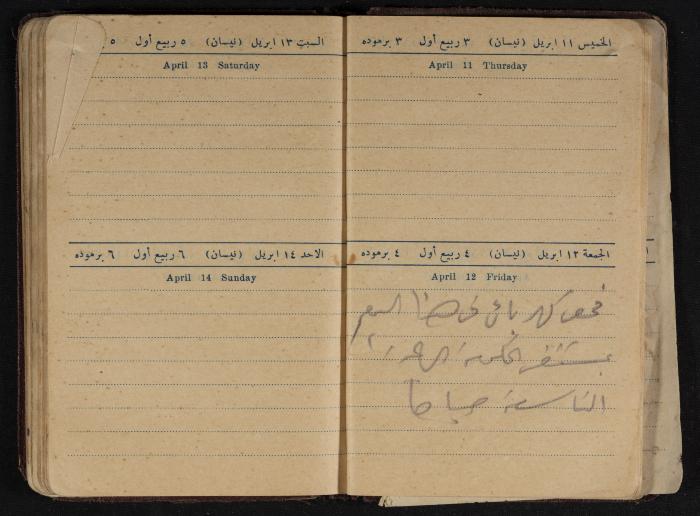 الخميس ١١ ابريل (نيسان) ٣ ربيع أول ٣ برموده
April 11 Thursday
الجمعة ١٢ ابريل (نيسان) ٤ ربيع أول ٤ برموده
April 12 Friday
فحص كهربائي في هذا اليوم
بمستشفى الحكومة الساعة
التاسعة صباحا
السبت ١٣ ابريل (نيسان) ٥ ربيع أول ٥
April 13 Saturday
الاحد ١٤ ابريل (نيسان) ٦ ربيع أول ٦ برموده
April 14 Sunday